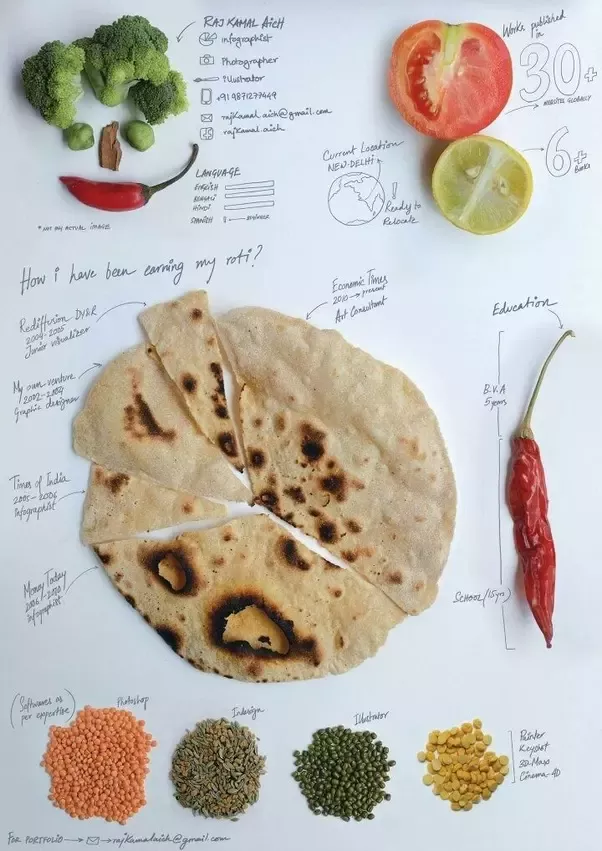 RAJ KAMAL AICH
infographist
Photographer
illustrator
+919871277449
rajkamal.aich@gmail.com
rajkamal.aich
LANGUAGE
ENGLISH
BENGALI
HINDI
SPANISH
BEGINNER
* NOT MY ACTUAL IMAGE
Works published
in
30+
WEBSITES GLOBALLY
6+
Books
Current Location
NEW-DELHI
Ready to
Relocate
How i have been earning my roti?
Rediffusion DY&R
2004-2005
Junior visualizer
My own venture
2002-2004
Graphic designer
Times of India
2005-2006
infographist
Money Today
2006-2010
infographist
Economic Times
2010 → present
Art Consultant
Education
B.V.A
5 years
SCHOOL (15yrs)
(Softwares as
per expertise)
Photoshop
Indesign
Illustrator
Painter
Keyshot
3D-Max
Cinema-4D
FOR PORTFOLIO → → rajkamalaich@gmail.com